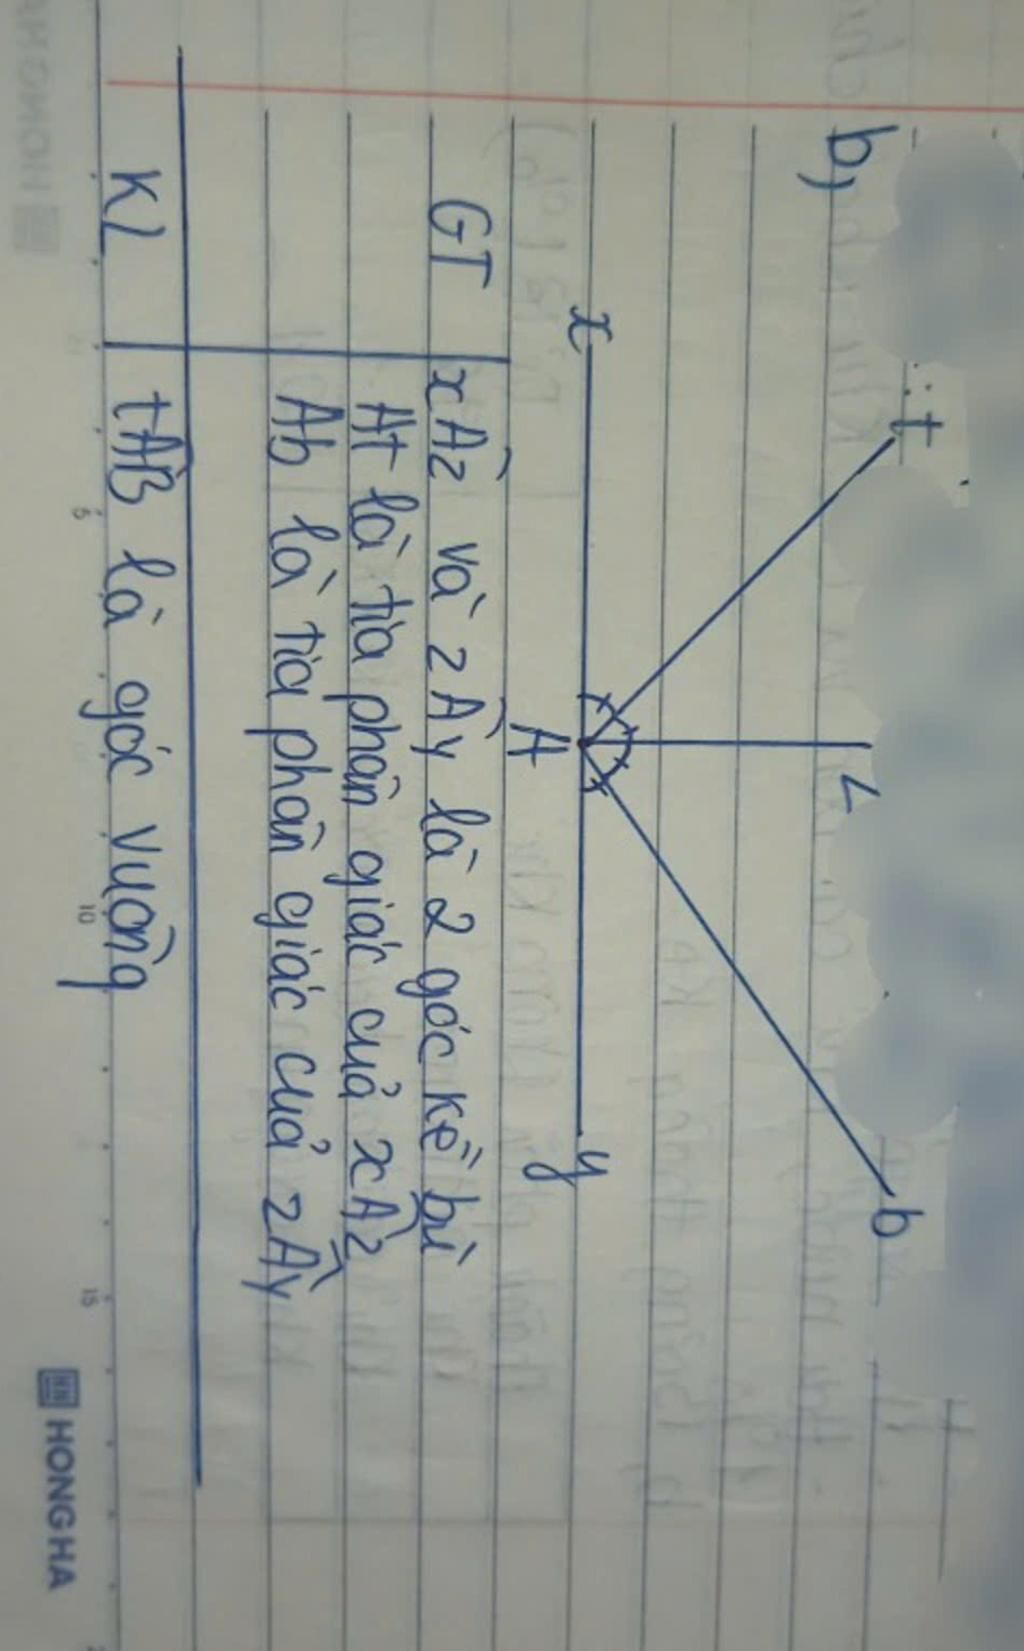 b,
t
z
b
x
A
y
GT xÂz và zÂy là 2 góc kề bù
At là tia phân giác của xÂz
Ab là tia phân giác của zÂy
KL tÂB là góc vuông
5 10 15
HONG HA